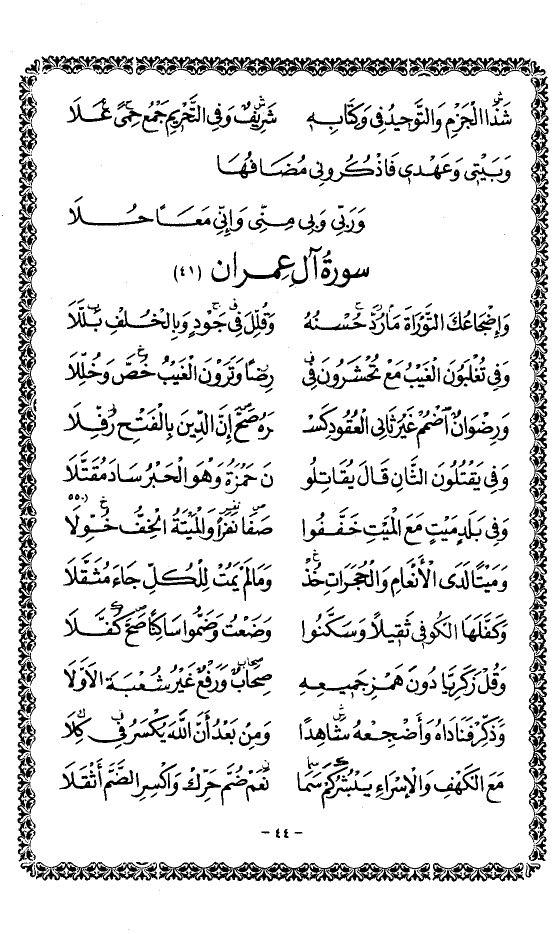 شَذَا الْجَزْمِ وَالتَّوْحِيدُ فِي وَكِتَابِهِ شَرِيفٌ وَفِي التَّحْرِيمِ جَمْعُ حِمىً عَلَا
وَبَيْتِي وَعَهْدِي فَاذْكُرُونِي مُضَافُهَا
وَرَبِّي وَبِي مِنِّي وَإِنِّي مَعًا حُلَا
سورة آل عمران (٤١)
وَإِضْجَاعُكَ التَّوْرَاةَ مَا رُدَّ حُسْنُهُ وَقُلِّلَ فِي جَوْدٍ وَبِالْخُلْفِ بَلَّلَا
وَفِي تُغْلَبُونَ الْغَيْبُ مَعْ تُحْشَرُونَ فِي رِضًا وَتَرَوْنَ الْغَيْبُ خُصَّ وَخُلِّلَا
وَرِضْوَانٌ اضْمُمْ غَيْرَ ثَانِي الْعُقُودِ كَسْ رَهُ صَحَّ إِنَّ الدِّينَ بِالْفَتْحِ رُفِّلَا
وَفِي يَقْتُلُونَ الثَّانِ قَالَ يُقَاتِلُو نَ حَمْزَةُ وَهْوَ الْحَبْرُ سَادَ مُقَتَّلَا
وَفِي بَلَدٍ مَيْتٍ مَعَ الْمَيْتِ خَفَّفُوا صَفَا نَفَرًا وَالْمَيْتَةُ الْخِفُّ خُوِّلَا (٥٥٠)
وَمَيْتًا لَدَى الْأَنْعَامِ وَالْحُجُرَاتِ خُذْ وَمَا لَمْ يَمُتْ لِلْكُلِّ جَاءَ مُثَقَّلَا
وَكَفَّلَهَا الْكُوفِي ثَقِيلًا وَسَكَّنُوا وَضَعْتُ وَضَمُّوا سَاكِنًا صَحَّ كُفَّلَا
وَقُلْ زَكَرِيَّا دُونَ هَمْزِ جَمِيعِهِ صِحَابٌ وَرَفْعٌ غَيْرُ شُعْبَةَ الْاَوَّلَا
وَذَكِّرْ فَنَادَاهُ وَأَضْجِعْهُ شَاهِدًا وَمِنْ بَعْدُ أَنَّ اللَّهَ يُكْسَرُ فِي كِلَا
مَعَ الْكَهْفِ وَالْإِسْرَاءِ يَبْشُرُكُمْ سَمَا نَعَمْ ضُمَّ حَرِّكْ وَاكْسِرِ الضَّمَّ أَثْقَلَا
- ٤٤ -